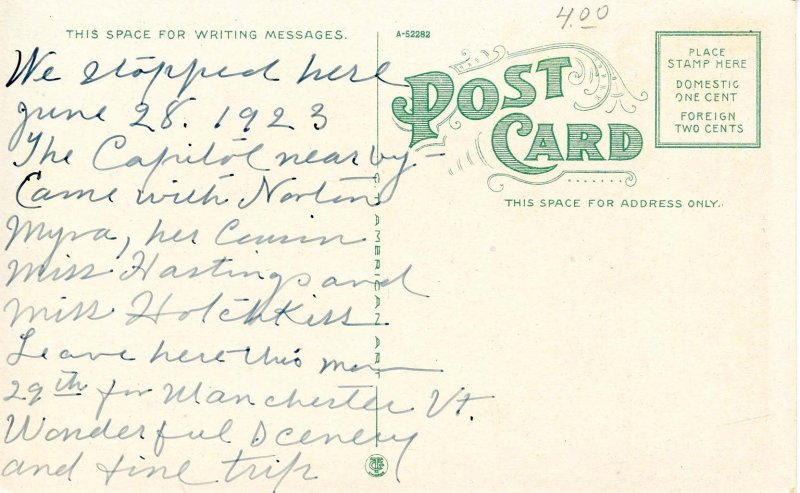 4.00
THIS SPACE FOR WRITING MESSAGES.
A-52282
POST CARD
PLACE
STAMP HERE
DOMESTIC
ONE CENT
FOREIGN
TWO CENTS
THIS SPACE FOR ADDRESS ONLY.
We stopped here
June 28. 1923
The Capitol near by —
Came with Nortons
Myra, her Cousin
Miss Hastings and
Miss Hotchkiss
Leave here this morn
29th for Manchester Vt.
Wonderful Scenery
and fine trip
C. T. AMERICAN ART